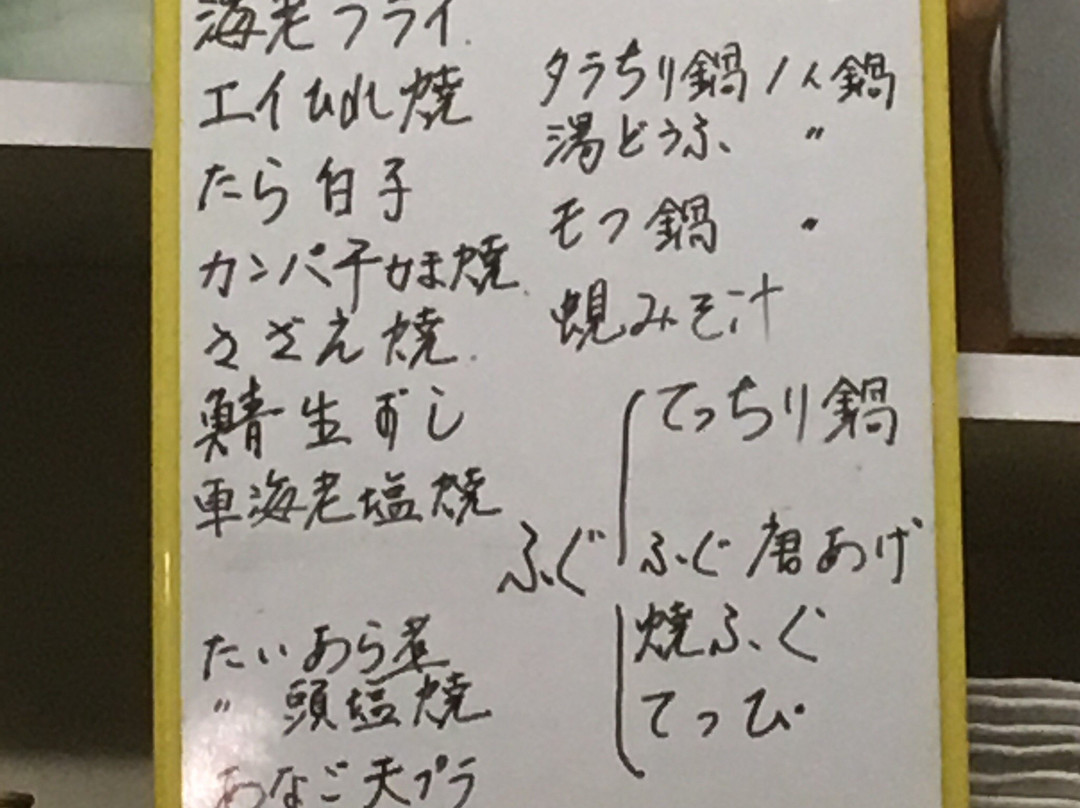 海老フライ
エイひれ焼
たら白子
カンパチかま焼
さざえ焼
鯖生ずし
車海老塩焼
たいあら煮
〃 頭塩焼
あなご天プラ
タラちり鍋 1人鍋
湯どうふ 〃
モツ鍋 〃
蜆みそ汁
ふぐ
てっちり鍋
ふぐ唐あげ
焼ふぐ
てっぴ